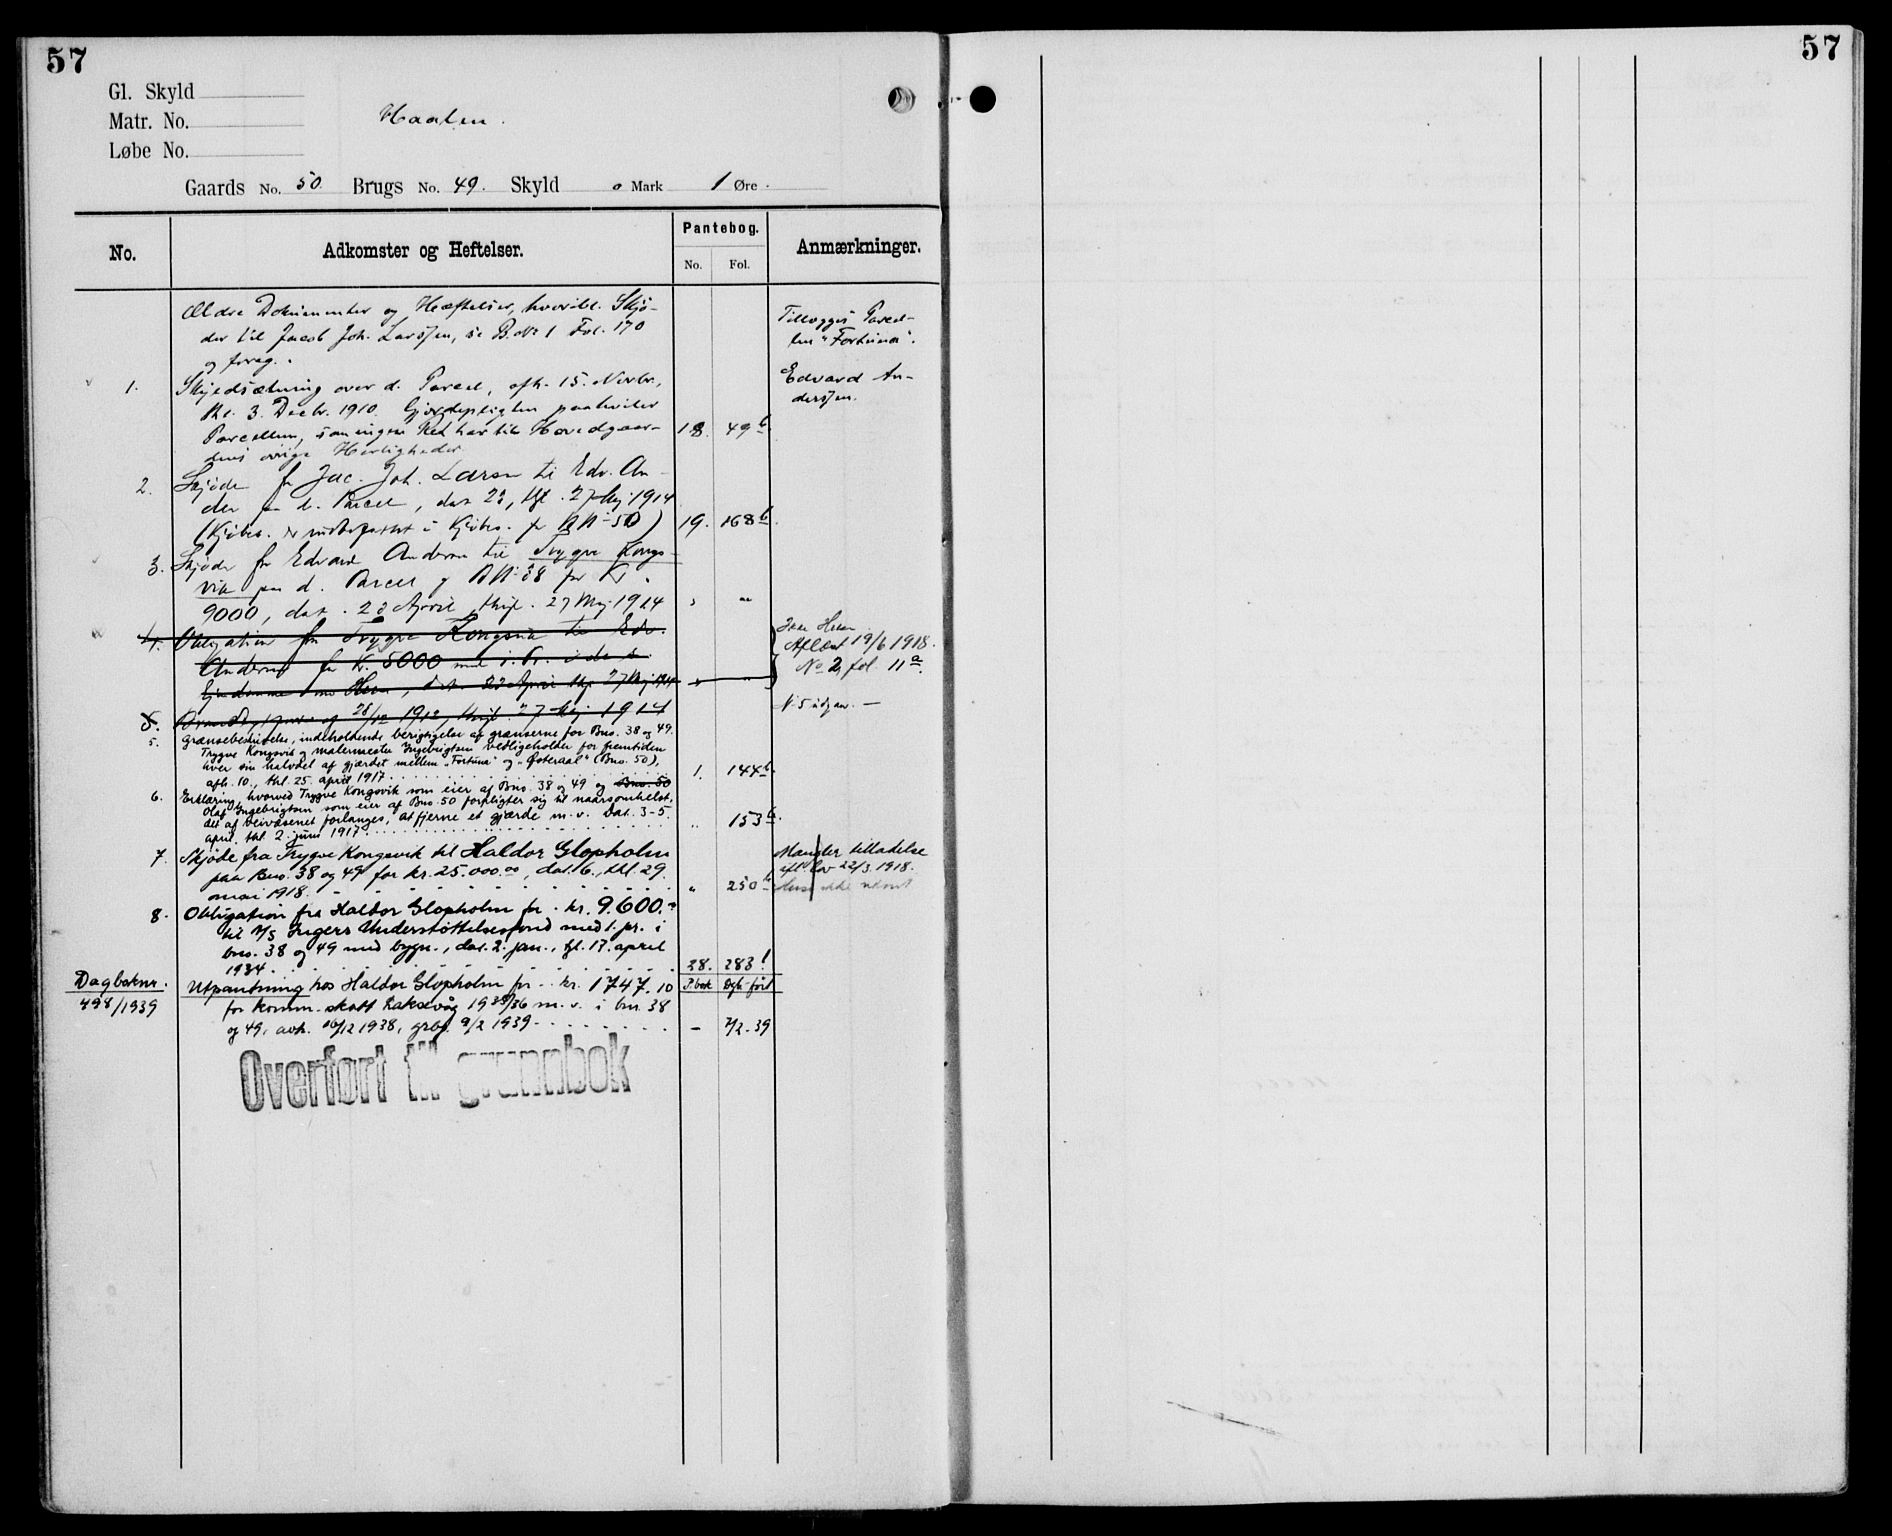 57
57
Gl. Skyld
Matr. No.
Haaten.
Løbe No.
Gaards No. 50. Brugs No. 49. Skyld 0 Mark 1 Øre.
No.
Adkomster og Heftelser.
Pantebog.
No. Fol.
Anmærkninger.
Ældre Dokumenter og Hæftelser, hvoribl. Skjø-
der til Jacob Joh. Larssen, se B.No 1 Fol. 170
og foreg.
Tillægges Parcel-
len "Fortuna".
1. Skyldsætning over d. Parcel, afh. 15. Novbr.,
thl. 3. Decbr. 1910. Gjerdepligten paahviler
Parcellen, som ingen Ret har til Hovedgaar-
dens øvrige Herligheder
18. 49 b
Edvard An-
derssen.
2. Skjøde fr Jac. Joh. Larsen til Edv. An-
der paa d. Parcel, dat 23, thl. 27 Maj 1914
(Kjøbes. er indbefattet i Kjøbes. for BN 50)
19. 168 b
3. Skjøde fr Edvard Andersen til Trygve Kongs-
vik paa d. Parcel og BN 38 for Kr.
9000, dat. 23 April, thgl. 27 Maj 1914
" "
4. Obligation fra Trygve Kongsvik til Edv.
Andersen for Kr. 5000 med 1. Pr. i de s.
Ejendomme med Huse, dat. 23 April thgl 27 Maj 1914
" "
Aflæst 19/6 1918.
No 2, fol. 11 a.
5. 28/12 1912, thgl. 27 Maj 1914
5. Grænsebeskrivelse, indeholdende berigtigelse af grænserne for Bno. 38 og 49.
Trygve Kongsvik og malermester Ingebrigtsen vedligeholder for fremtiden
hver sin halvdel af gjærdet mellem „Fortuna" og „Østeraal" (Bno. 50),
afh. 10., thl. 25. april 1917
1. 144 b.
6. Erklæring, hvorved Trygve Kongsvik som eier af Bno. 38 og 49 og Bno. 50
Olaf Ingebrigtsen som eier af Bno. 50 forpligter sig til naarsomhelst,
det af veivæsenet forlanges, at fjerne et gjærde m.v. Dat. 3-5.
april, thl. 2. juni 1917
" 153 b.
7. Skjøde fra Trygve Kongsvik til Haldor Glopholm
paa Bno. 38 og 49 for kr. 25.000.00, dat. 6., thl. 29.
mai 1918.
" 250 b
Mangler tilladelse
eftr lov 22/3. 1918.
8. Obligation fra Haldor Glopholm for kr. 9.600.-
til A/S Ingers Understøttelsesfond med 1. pr. i
bno. 38 og 49 med bygn., dat. 2. jan., tgl. 17. april
1934
28. 283
Dagboknr.
498/1939
Utpantning hos Haldor Glopholm for kr. 1747.10
for komm. skatt Laksevåg 1935/36 m.v. i bnr 38
og 49, avh. 10/12 1938, grbf. 9/2 1939
P.bok Dgb. ført
- 7/2-39
Overført til grunnbok